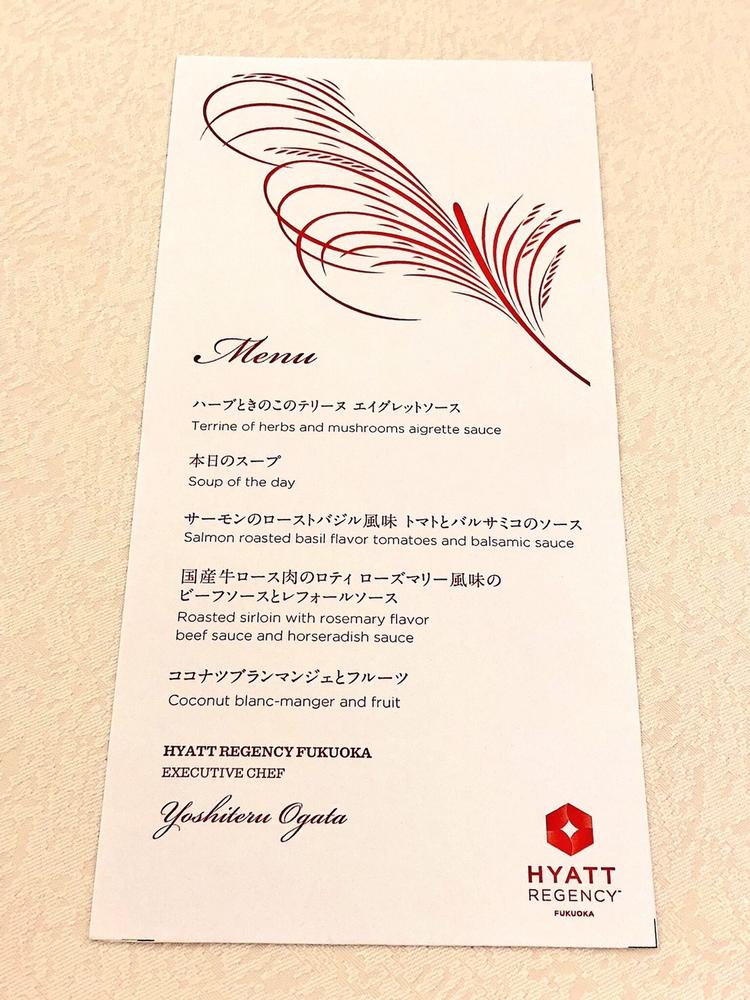 Menu
ハーブときのこのテリーヌ エイグレットソース
Terrine of herbs and mushrooms aigrette sauce
本日のスープ
Soup of the day
サーモンのローストバジル風味 トマトとバルサミコのソース
Salmon roasted basil flavor tomatoes and balsamic sauce
国産牛ロース肉のロティ ローズマリー風味の
ビーフソースとレフォールソース
Roasted sirloin with rosemary flavor
beef sauce and horseradish sauce
ココナツブランマンジェとフルーツ
Coconut blanc-manger and fruit
HYATT REGENCY FUKUOKA
EXECUTIVE CHEF
Yoshiteru Ogata
HYATT
REGENCY™
FUKUOKA